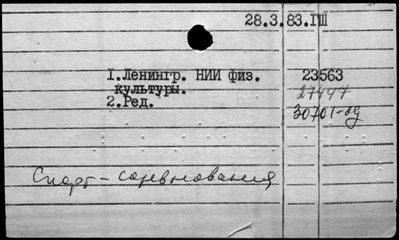 28.3.83.ГПШ
1.Ленингр. НИИ физ. 23563
культуры. 27447
2.Ред. 30701-дд
Спорт - соревнования